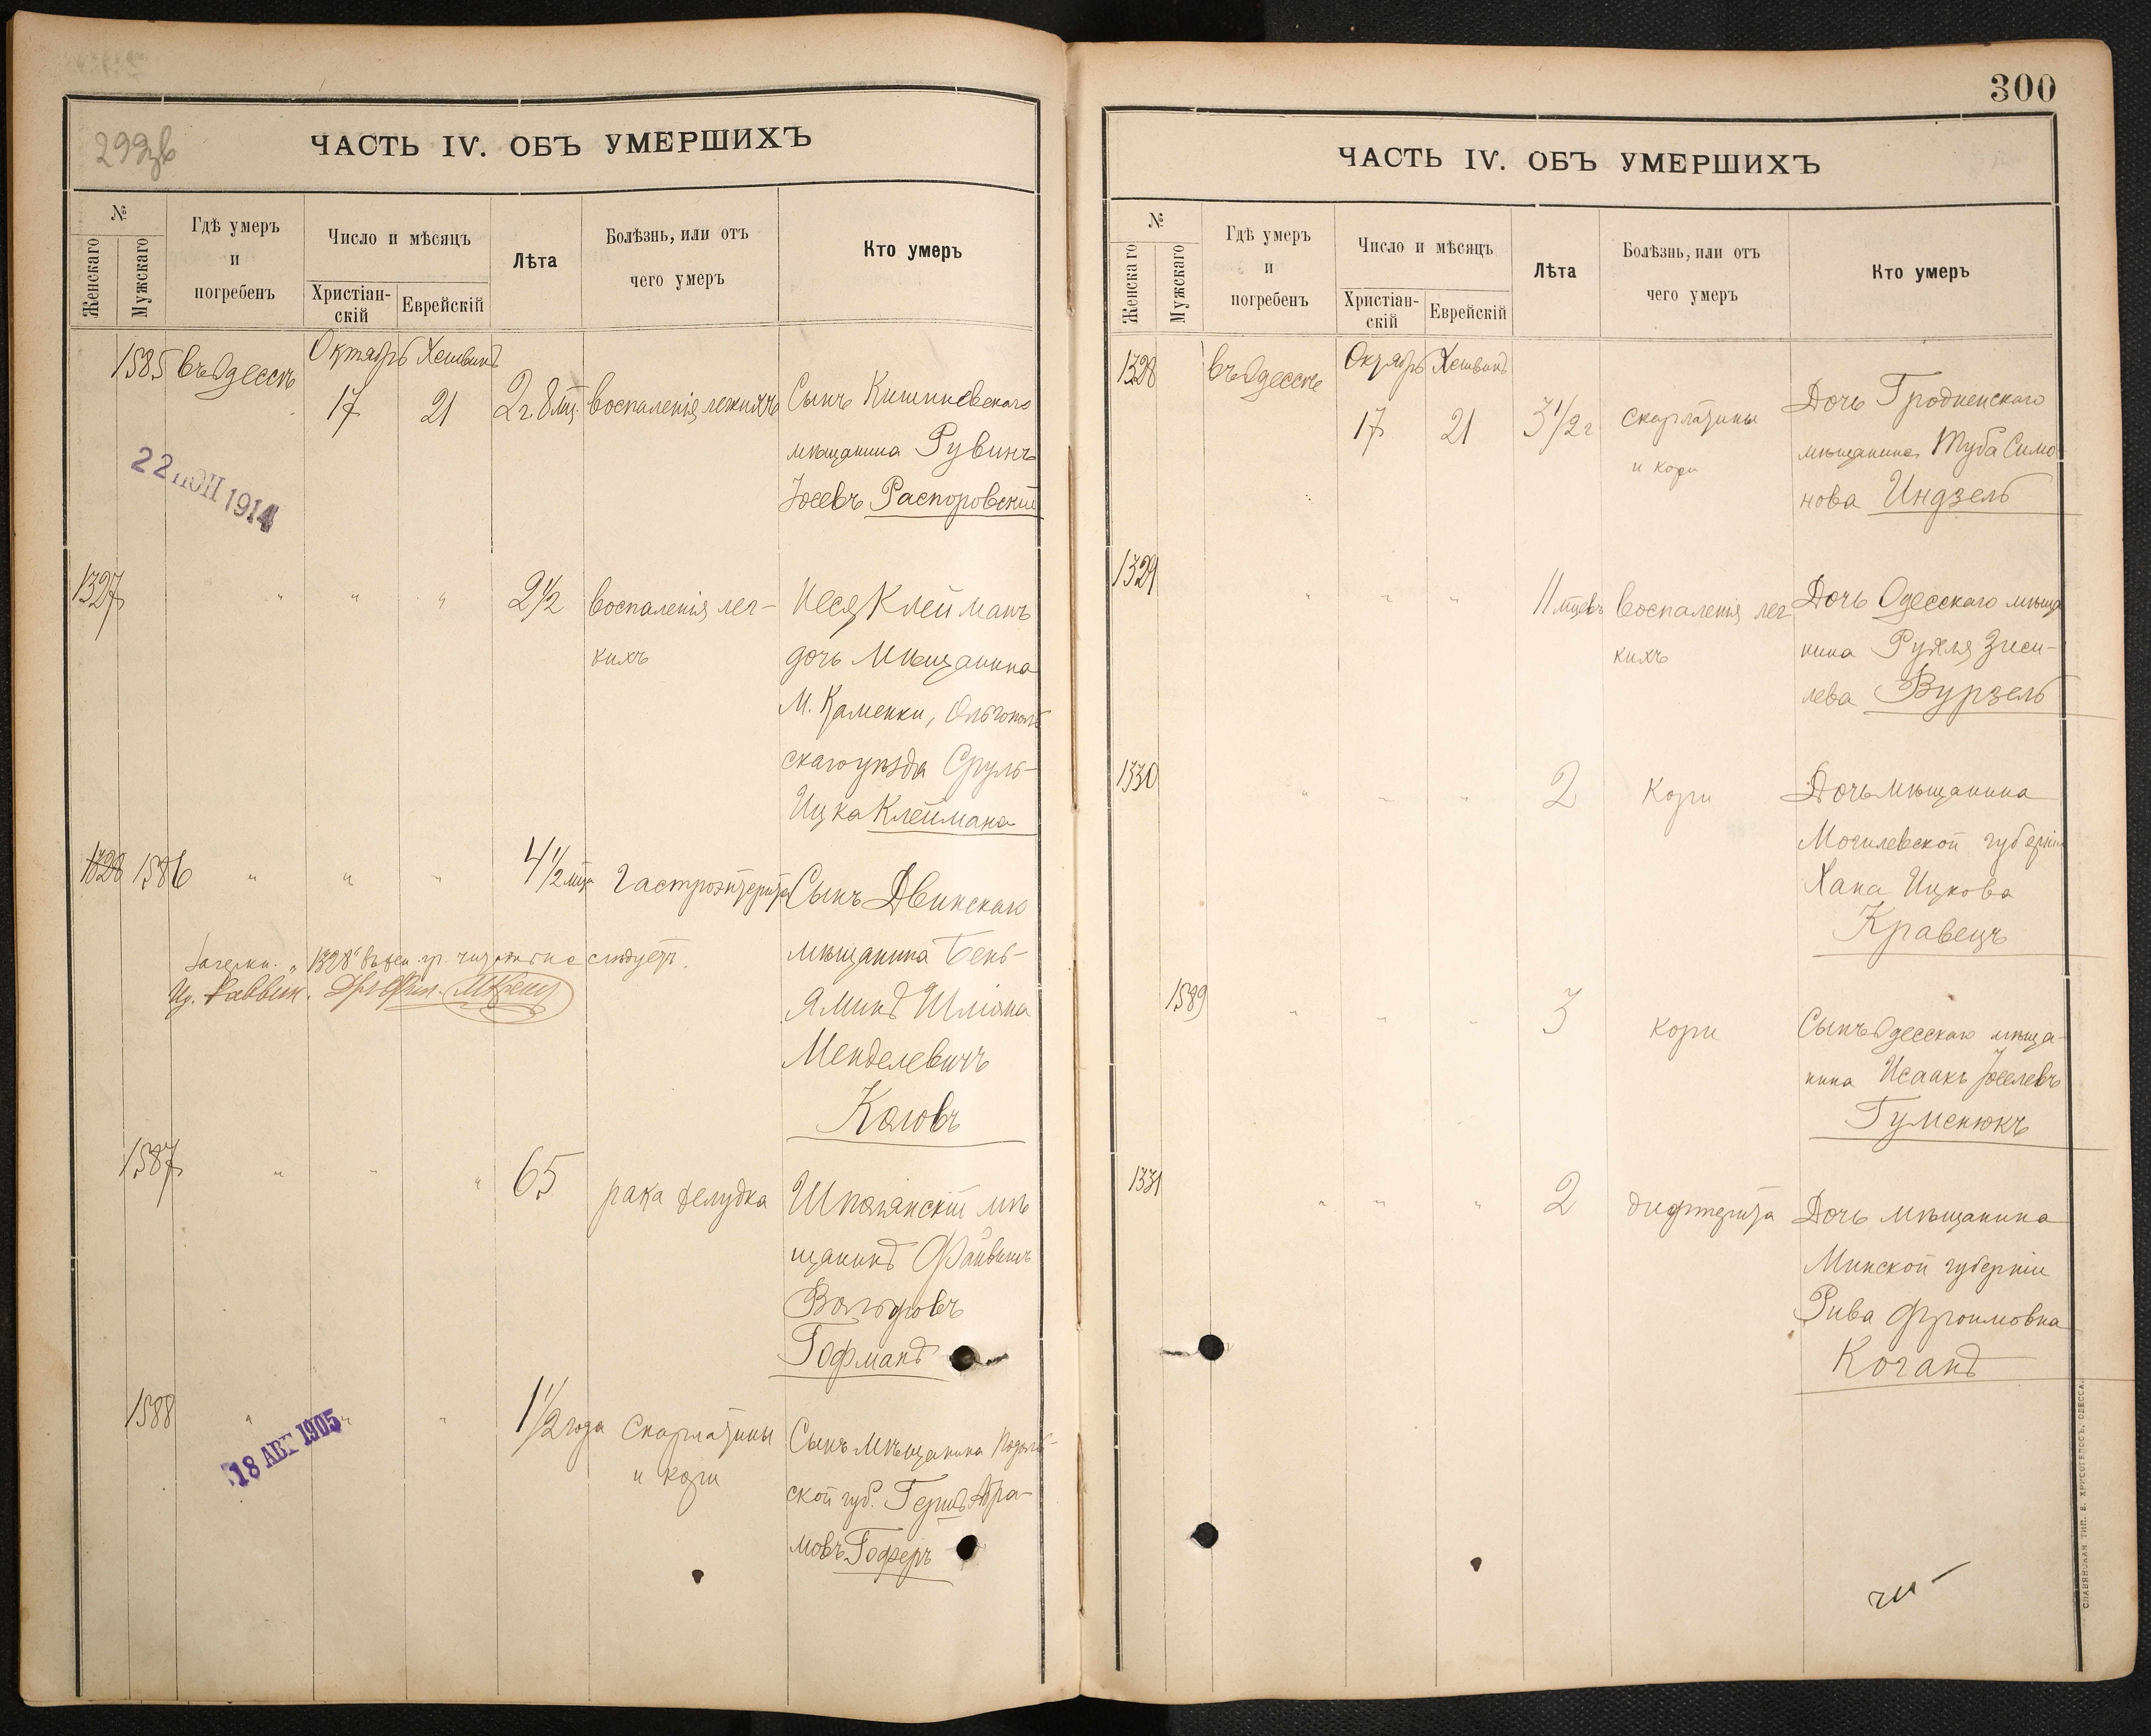 299зв
ЧАСТЬ IV. ОБЪ УМЕРШИХЪ
№
Женскаго
Мужскаго
Гдѣ умеръ
и
погребенъ
Число и мѣсяцъ
Христіан-
скій
Еврейскій
Лѣта
Болѣзнь, или отъ
чего умеръ
Кто умеръ
1585 въ Одессѣ Октябрь Хешванъ
17 21 2 г. 8 м. воспаленія легкихъ Сынъ Кишиневскаго
мѣщанина Рувинъ
Іосевъ Распоровскій
22 ІЮН 1914
1327 " " " 2½ воспаленія лег- Иеся Клейманъ
кихъ дочь Мѣщанина
М. Каменки, Ольгополь
скаго уѣзда Сруль-
Ицка Клеймана
1328 1586 " " " 4½ мца Гастроэнтерита Сынъ Двинскаго
мѣщанина Бень-
яминъ Шліома
Менделевичъ
Каговъ
Зачеркн. "1328" въ жен. гр. читать не слѣдуетъ.
Раввин.
1587 " " " 65 рака желудка Шполянскій мѣ
щанинъ Файвишъ
Вольфовъ
Гофманъ
1588 " " " 1½ года Скарлатины Сынъ Мѣщанина Подоль-
и кори ской губ. Гершъ Абра-
мовъ Гоферъ
18 АВГ 1905
300
ЧАСТЬ IV. ОБЪ УМЕРШИХЪ
№
Женскаго
Мужскаго
Гдѣ умеръ
и
погребенъ
Число и мѣсяцъ
Христіан-
скій
Еврейскій
Лѣта
Болѣзнь, или отъ
чего умеръ
Кто умеръ
1328 въ Одессѣ Октябрь Хешванъ
17 21 3½ г скарлатины Дочь Гродненскаго
и кори мѣщанина Туба Симо-
нова Индзель
1329 " " " 11 мцевъ воспаленія лег Дочь Одесскаго мѣща
кихъ нина Рухля Зиси-
лева Вурзель
1330 " " " 2 Кори Дочь мѣщанина
Могилевской губерніи
Хана Ицкова
Кравецъ
1589 " " " 3 кори Сынъ Одесскаго мѣща-
нина Исаакъ Іоселевъ
Гуменюкъ
1331 " " " 2 дифтерита Дочь мѣщанина
Минской губерніи
Рива Фроимовна
Коганъ
СЛАВЯНСКАЯ ТИП. Е. ХРИСОГЕЛОСЪ, ОДЕССА.